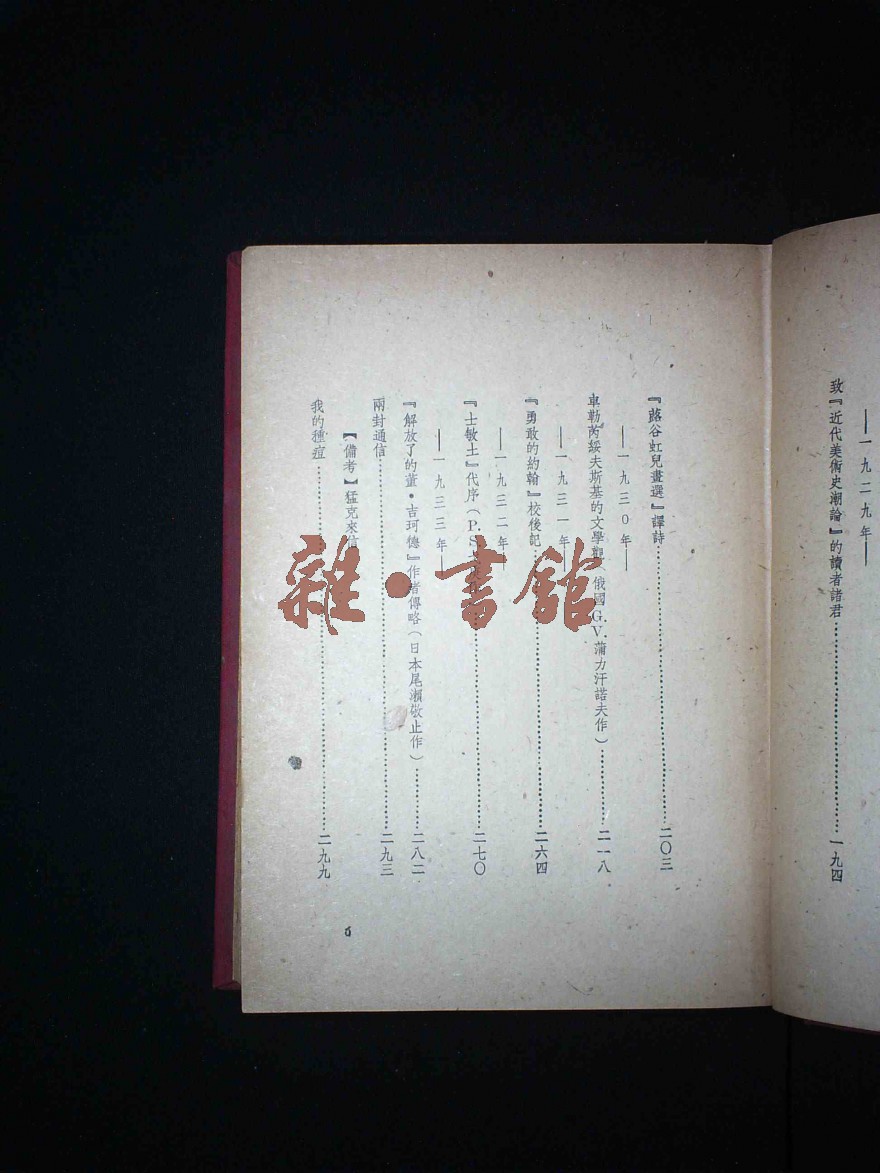 ——一九二九年——
致『近代美術史潮論』的讀者諸君……一九四
『蕗谷虹兒畫選』譯詩……二〇三
——一九三〇年——
車勒芮綏夫斯基的文學觀（俄國G.V.蒲力汗諾夫作）……二一八
——一九三一年——
『勇敢的約翰』校後記……二六四
——一九三二年——
『士敏土』代序（P.S.……二七〇
——一九三三年——
『解放了的董·吉珂德』作者傳略（日本尾瀨敬止作）……二八二
兩封通信……二九三
【備考】猛克來信
我的種痘……二九九
6
雜·書館